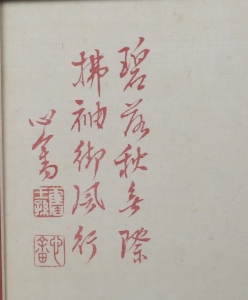 碧落秋無際
拂袖御風行
心畬